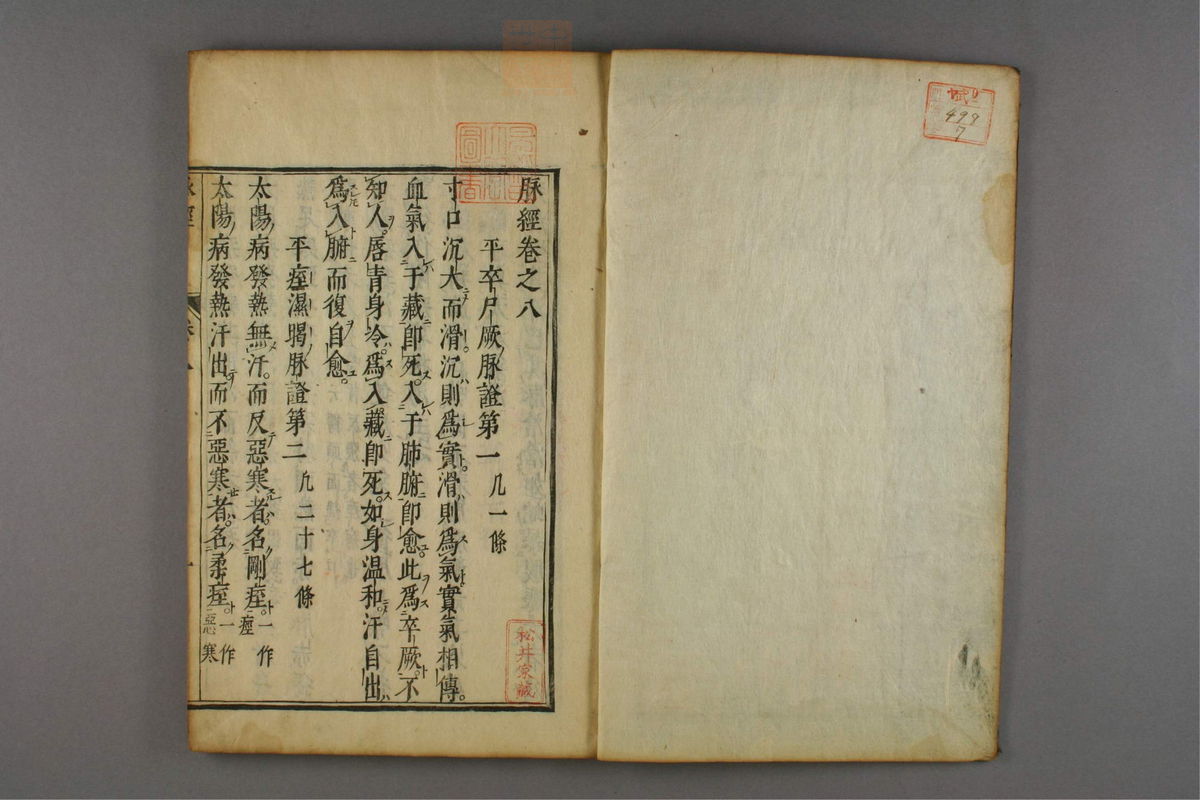 脉經卷之八
平卒尸厥脉證第一 凡一條
寸口沉大而滑沉則爲實滑則爲氣實氣相傳
血氣入于藏卽死入于肺腑卽愈此爲卒厥不
知人唇青身冷爲入藏卽死如身温和汗自出
爲入腑而復自愈
平痓濕暍脉證第二 凡二十七條
太陽病發熱無汗而反惡寒者名剛痓一作痙
太陽病發熱汗出而不惡寒者名柔痓一作惡寒
松井家藏
499
7